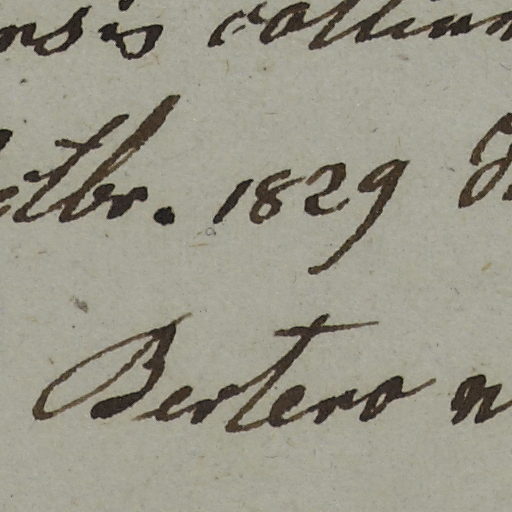 nsis collium
ctbr. 1829
Bertero n